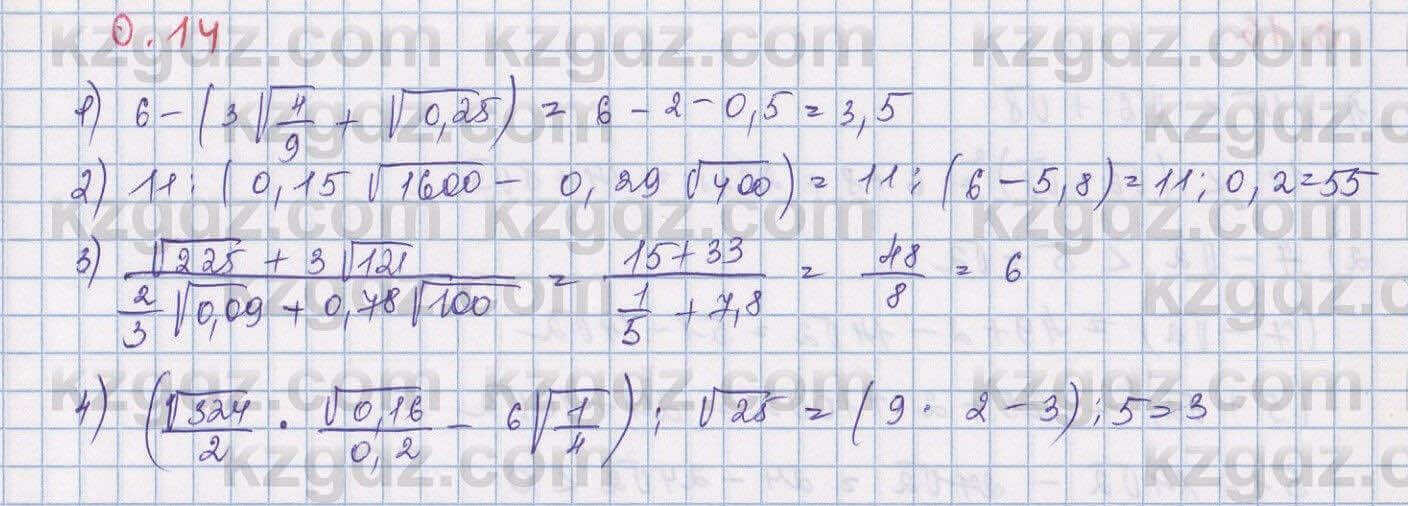 0.14
1) 6 - (3√(4/9) + √(0,25)) = 6 - 2 - 0,5 = 3,5
2) 11 : (0,15√(1600) - 0,29√(400)) = 11 : (6 - 5,8) = 11 : 0,2 = 55
3) (√(225) + 3√(121))/((2/3)√(0,09) + 0,78√(100)) = (15 + 33)/(1/5 + 7,8) = 48/8 = 6
4) (√(324)/2 · √(0,16)/0,2 - 6√(1/4)) : √(25) = (9 · 2 - 3) : 5 = 3
kzgdz.com